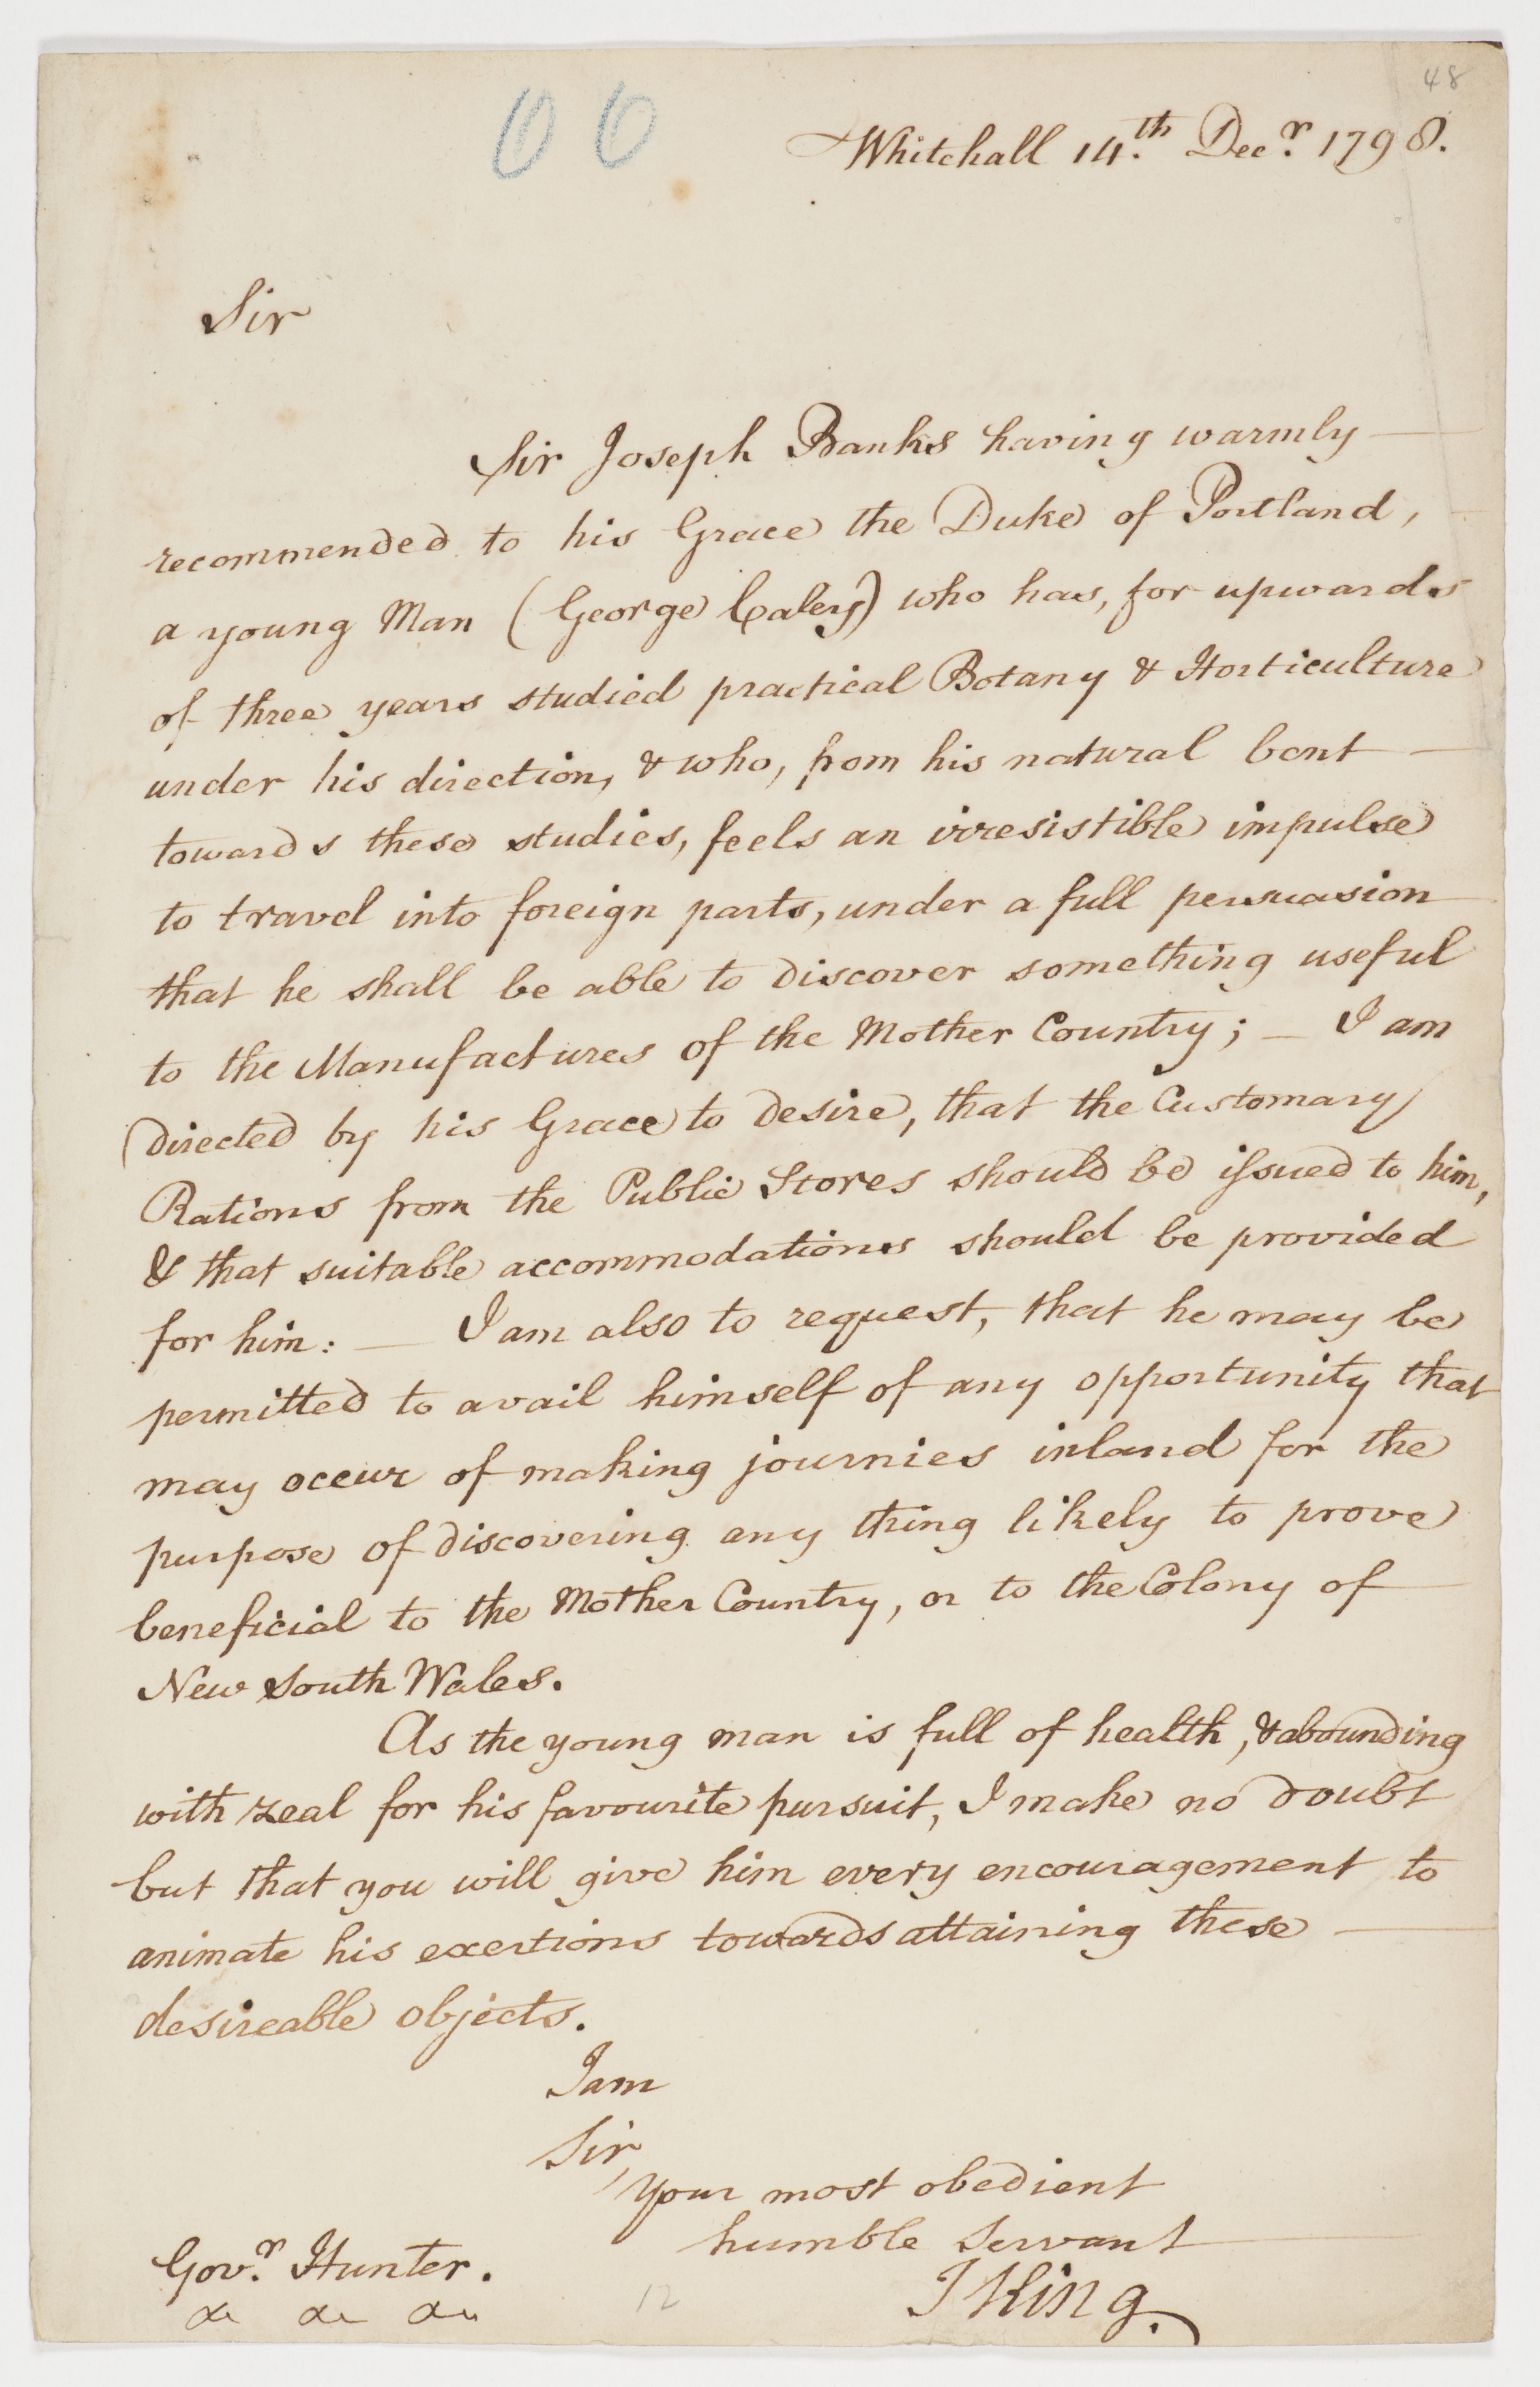 48
Whitehall 14.th Decr. 1798.
Sir
Sir Joseph Banks having warmly —
recommended to his Grace the Duke of Portland,
a young Man (George Caley) who has, for upwards
of three years studied practical Botany & Horticulture
under his direction, & who, from his natural bent —
towards these studies, feels an irresistible impulse
to travel into foreign parts, under a full persuasion
that he shall be able to discover something useful
to the Manufactures of the Mother Country; — I am
directed by his Grace to desire, that the Customary
Rations from the Public Stores should be issued to him,
& that suitable accommodations should be provided
for him: — I am also to request, that he may be
permitted to avail himself of any opportunity that
may occur of making journies inland for the
purpose of discovering any thing likely to prove
beneficial to the Mother Country, or to the Colony of
New South Wales.
As the young man is full of health, & abounding
with zeal for his favourite pursuit, I make no doubt
but that you will give him every encouragement to
animate his exertions towards attaining these —
desireable objects.
I am
Sir,
Your most obedient
humble Servant
J King.
Govr. Hunter.
&c &c &c
12